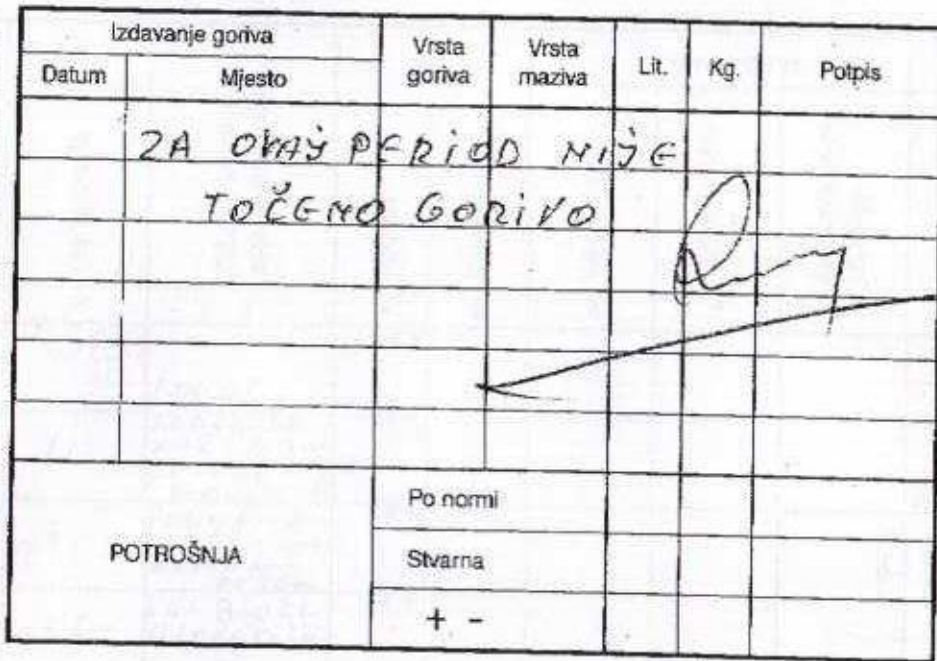 Izdavanje goriva
Vrsta goriva
Vrsta maziva
Lit.
Kg.
Potpis
Datum
Mjesto
ZA OVAJ PERIOD NIJE
TOČENO GORIVO
POTROŠNJA
Po normi
Stvarna
+ -